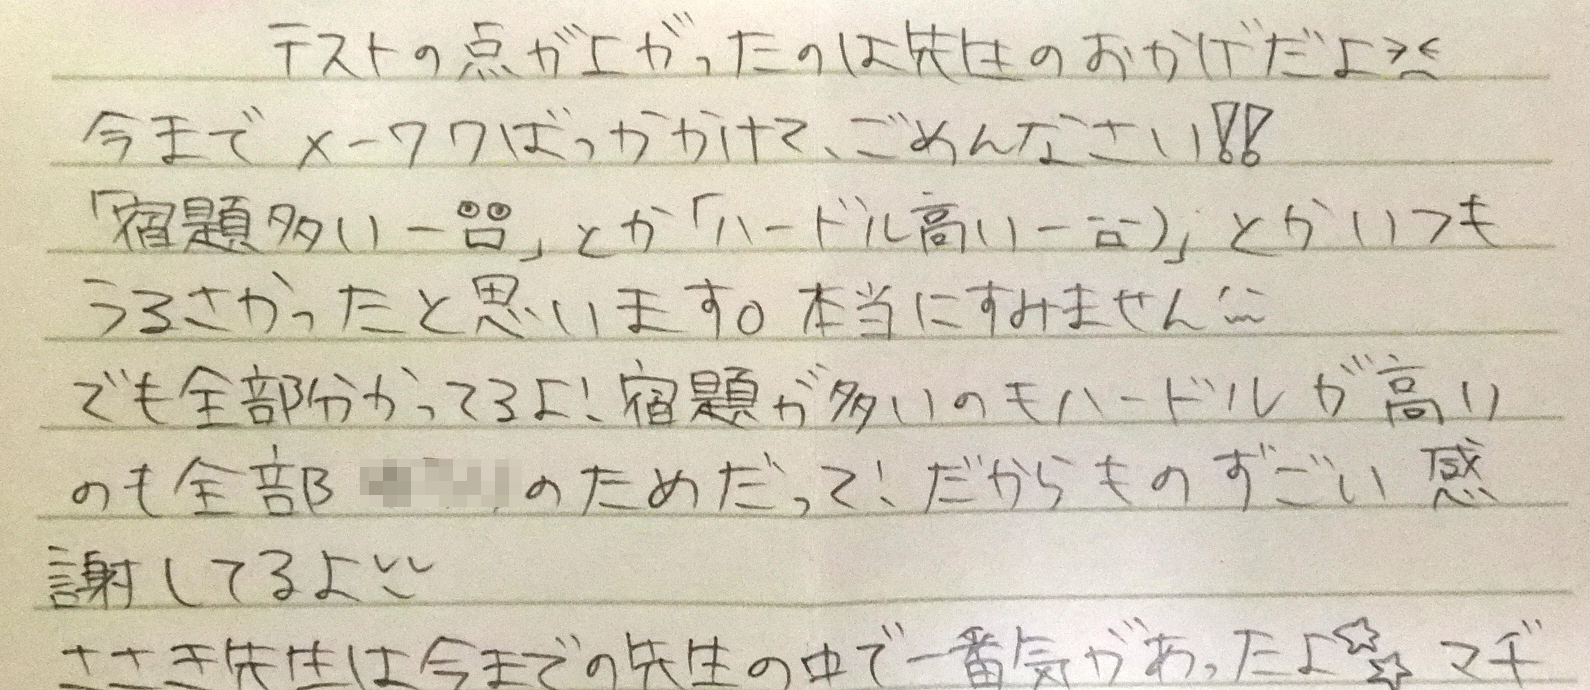 テストの点が上がったのは先生のおかげだよ
今までメーワクばっかかけて、ごめんなさい!!
「宿題多いー」とか「ハードル高いー」とかいつも
うるさかったと思います。本当にすみません
でも全部分かってるよ!宿題が多いのもハードルが高い
のも全部 のためだって!だからものすごい感
謝してるよ
ささき先生は今までの先生の中で一番気があったよ☆☆マヂ